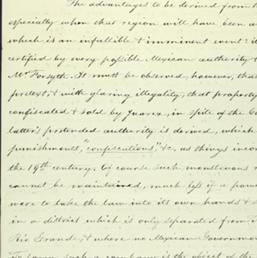 The advantages to be derived from t
especially when that region will have been a
which is an infallible & imminent event: i
certified by every possible Mexican authority &
Mr. Forsyth. It must be observed, however, tha
pretext, & with glaring illegality, that propert
confiscated & sold by Juarez, in spite of the Co
latter's pretended authority is derived, which
punishments, "confiscations" &c, as things inco
the 19th century. Of course such monstrous
cannot be maintained, much less if a pow
were to take the law into its own hands & 
in a district which is only separated from
Rio Grande, & where no Mexican Governmen
such a is the object of the